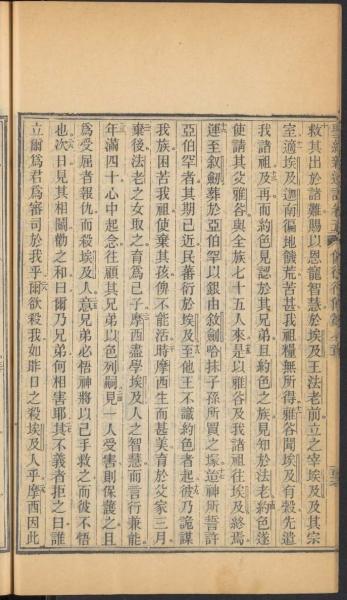 救其出於諸難賜以恩寵智慧於埃及王法老前立之宰埃及及其宗
室適埃及迦南徧地饑荒苦甚我祖糧無所得雅谷聞埃及有穀先遣
我諸祖及再而約色見認於其兄弟且約色之族見知於法老約色遂
使請其父雅谷與全族七十五人來是以雅谷及我諸祖往埃及終焉
運至敘劒葬於亞伯罕以銀由敘劒哈抹子孫所買之塚迨神所誓許
亞伯罕者其期已近民蕃衍於埃及至他王不識約色者起彼乃詭謀
我族困苦我祖使棄其孩俾不能活時摩西生而甚美育於父家三月
棄後法老之女取之育爲己子摩西盡學埃及人之智慧而言行兼能
年滿四十心中起念往顧其兄弟以色列嗣見一人受害則保護之且
爲受屈者報仇而殺埃及人意兄弟必悟神將以己手救之而彼不悟
也次日見其相鬭勸之和曰爾乃兄弟何相害耶其不義者拒之曰誰
立爾爲君爲審司於我乎爾欲殺我如昨日之殺埃及人乎摩西因此